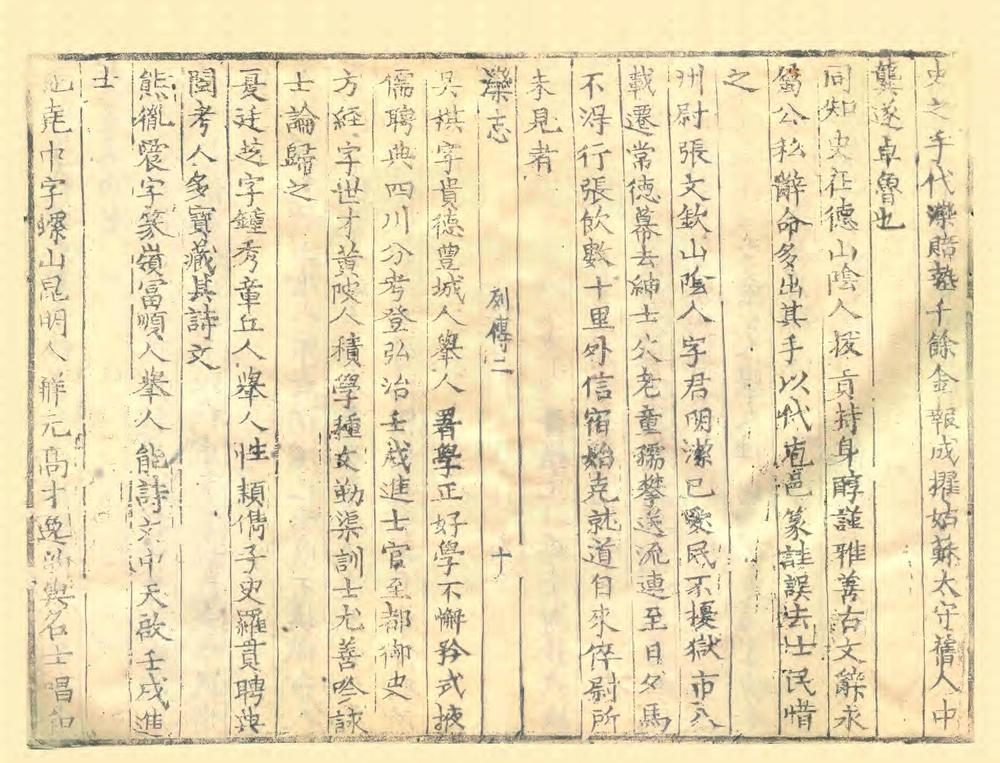 史之手代濼賠墊千餘金報成擢姑蘇太守舊人中
龔遂卓魯也
同知史在德山陰人拔貢持身醇謹雅善古文辭永
蜀公私辭命多出其手以代庖邑篆詿誤去士民惜
之
州尉張文欽山陰人字君明潔已愛民不擾獄市八
載遷常德幕去紳士父老童孺攀送流連至日夕馬
不淂行張飲數十里外信宿始克就道自來倅尉所
未見者
列傳二 十
濼志
吳祺字貴德豊城人舉人署學正好學不懈矜式掖
儒聘典四川分考登弘治壬戌進士官至都御史
方經字世才黄陂人積學種文勤渠訓士尤善吟詠
士論歸之
夏廷芝字鍾秀章丘人舉人性穎儁子史羅貫聘典
閩考人多寳藏其詩文
熊胤震字篆嶺富順人舉人能詩文中天啟壬戌進
士
尭中字螺山昆明人觧元高才逸與名士唱和